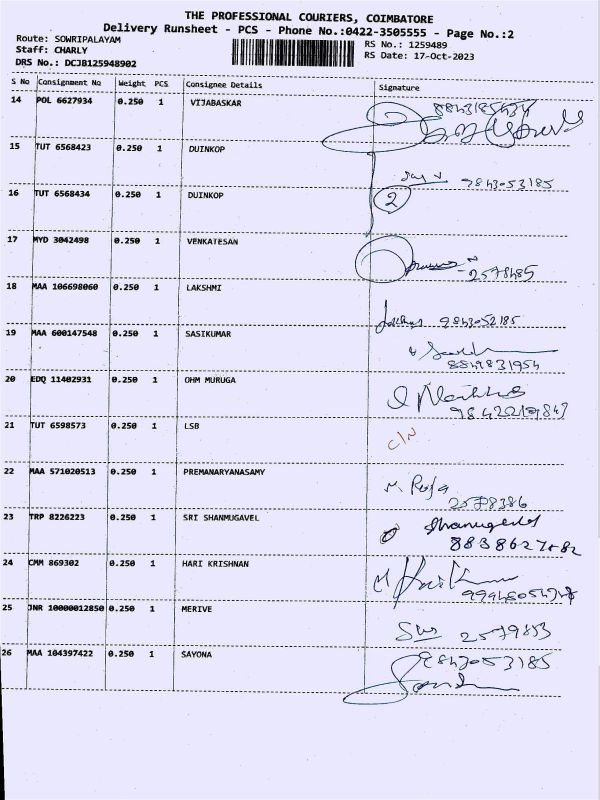 THE PROFESSIONAL COURIERS, COIMBATORE
Delivery Runsheet - PCS - Phone No.:0422-3505555 - Page No.:2
Route: SOWRIPALAYAM
RS No.: 1259489
Staff: CHARLY
RS Date: 17-Oct-2023
DRS No.: DCJB125948902
S No Consignment No Weight PCS Consignee Details Signature
14 POL 6627934 0.250 1 VIJABASKAR
15 TUT 6568423 0.250 1 DUINKOP
9843053185
16 TUT 6568434 0.250 1 DUINKOP 2
17 MYD 3042498 0.250 1 VENKATESAN
2578485
18 MAA 106698060 0.250 1 LAKSHMI
9843052185
19 MAA 600147548 0.250 1 SASIKUMAR
8849831954
20 EDQ 11402931 0.250 1 OHM MURUGA
21 TUT 6598573 0.250 1 LSB
C/N
22 MAA 571020513 0.250 1 PREMANARYANASAMY
M. Roja
2578386
23 TRP 8226223 0.250 1 SRI SHANMUGAVEL
24 CMM 869302 0.250 1 HARI KRISHNAN
25 JNR 10000012850 0.250 1 MERIVE
2579853
26 MAA 104397422 0.250 1 SAYONA
9843053185